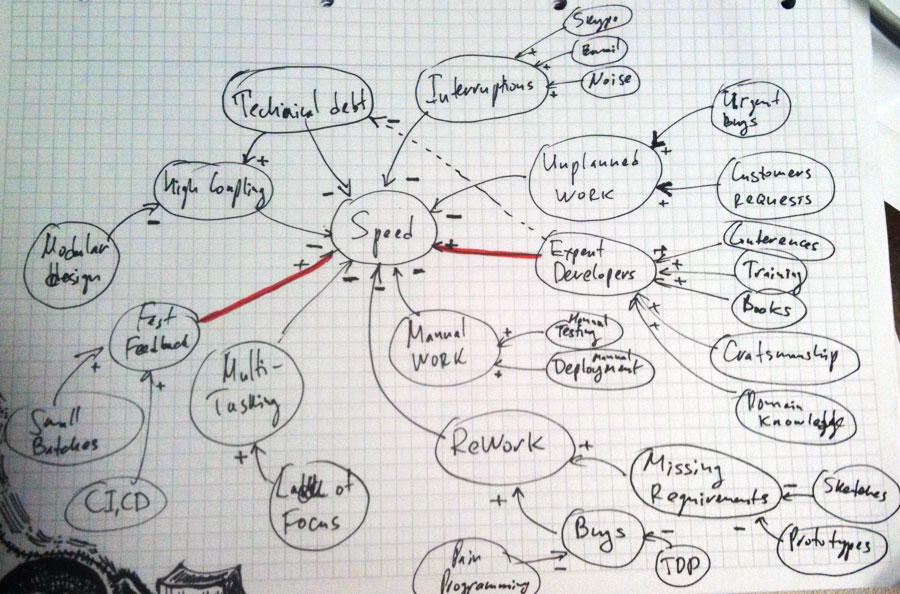 Skype
Email
Noise
Interruptions
Technical debt
Urgent
bugs
Unplanned
WORK
Customers
REQUESTS
High Coupling
Speed
Modular
design
Expert
Developers
Conferences
Training
Books
Craftsmanship
Domain
Knowledge
Fast
Feedback
Multi-
Tasking
Manual
WORK
Manual
Testing
Manual
Deployment
Small
Batches
CI,CD
Lack of
Focus
ReWork
Missing
Requirements
Sketches
Prototypes
Bugs
TDD
Pair
Programming